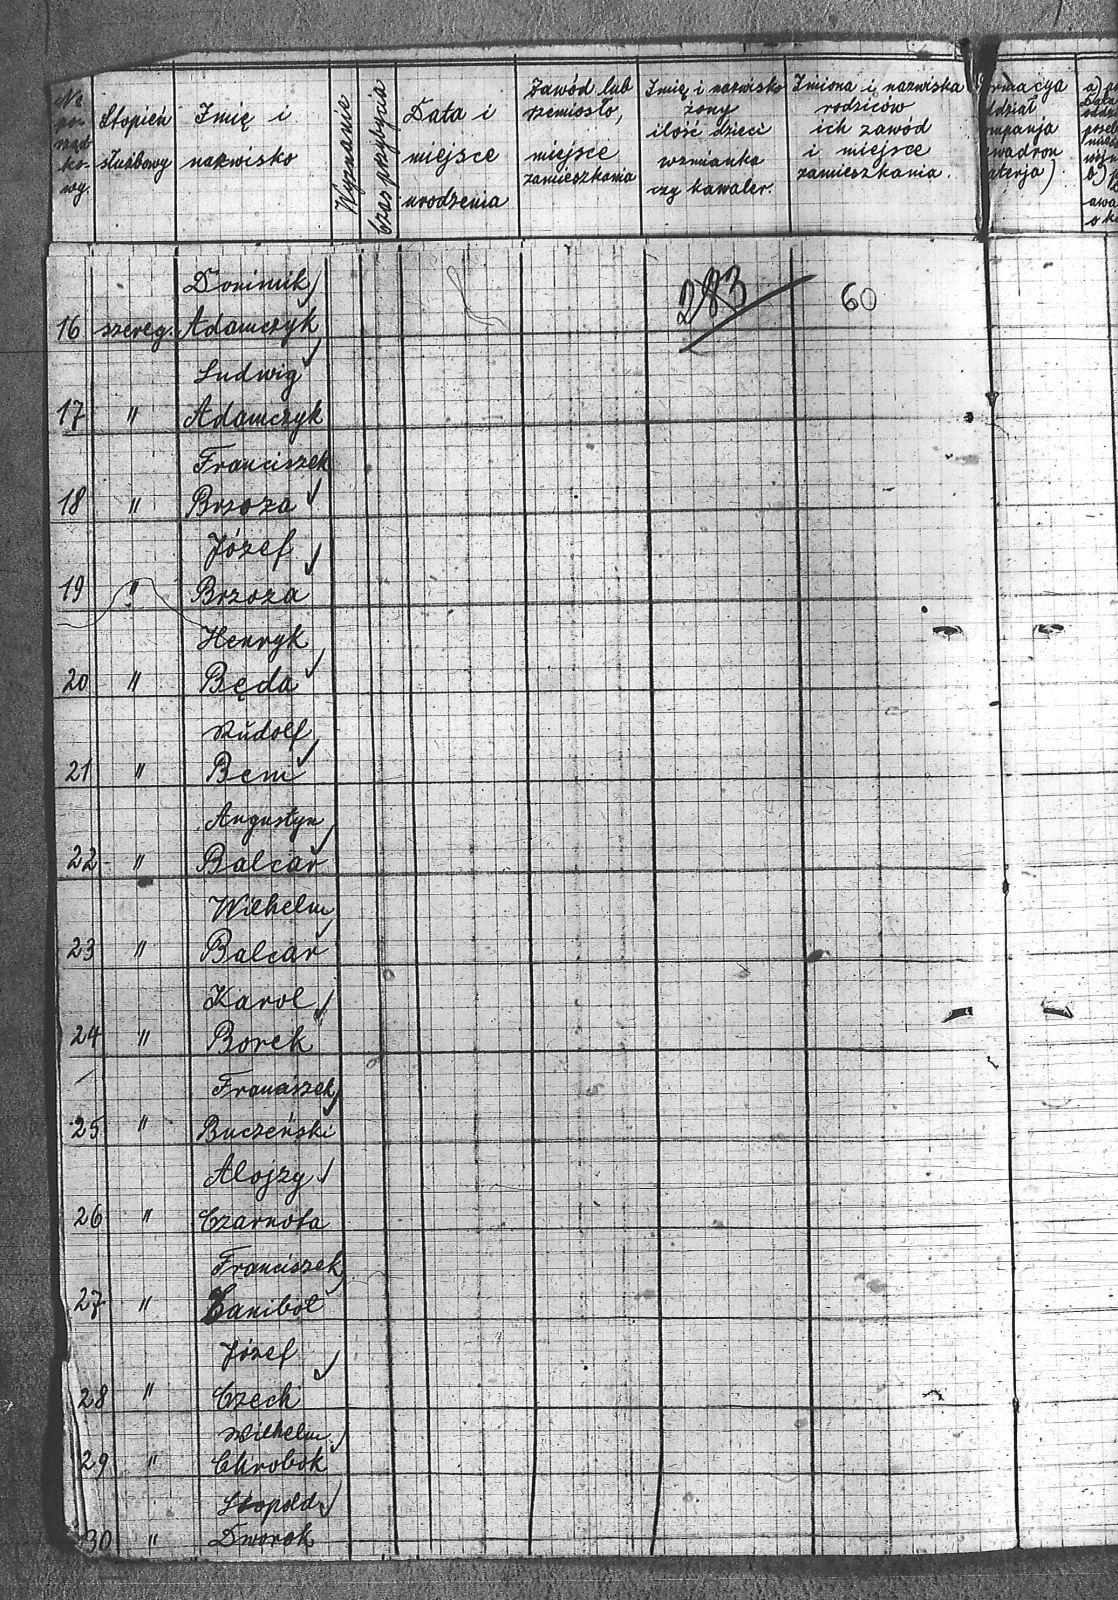 No
po-
rząd-
ko-
wy.
Stopień
służbowy
Imię i
nazwisko
Wyznanie
Czas przybycia
Data i
miejsce
urodzenia
Zawód lub
rzemiosło,
miejsce
zamieszkania
Imię i nazwisko
żony
ilość dzieci
wzmianka
czy kawaler.
Imiona i nazwiska
rodziców
ich zawód
i miejsce
zamieszkania.
rmacya
ddział
mpanja
wadron
aterja)
283
60
Dominik
16 szereg. Adamczyk
Ludwig
17 " Adamczyk
Franciszek
18 " Brzoza
Józef
19 " Brzoza
Henryk
20 " Będa
Rudolf
21 " Bem
Augustyn
22 " Balcar
Wilhelm
23 " Balcar
Karol
24 " Borek
Franciszek
25 " Buczeński
Alojzy
26 " Czarnota
Franciszek
27 " Caniból
Józef
28 " Czech
Wilhelm
29 " Chrobok
Leopold
30 " Dworok